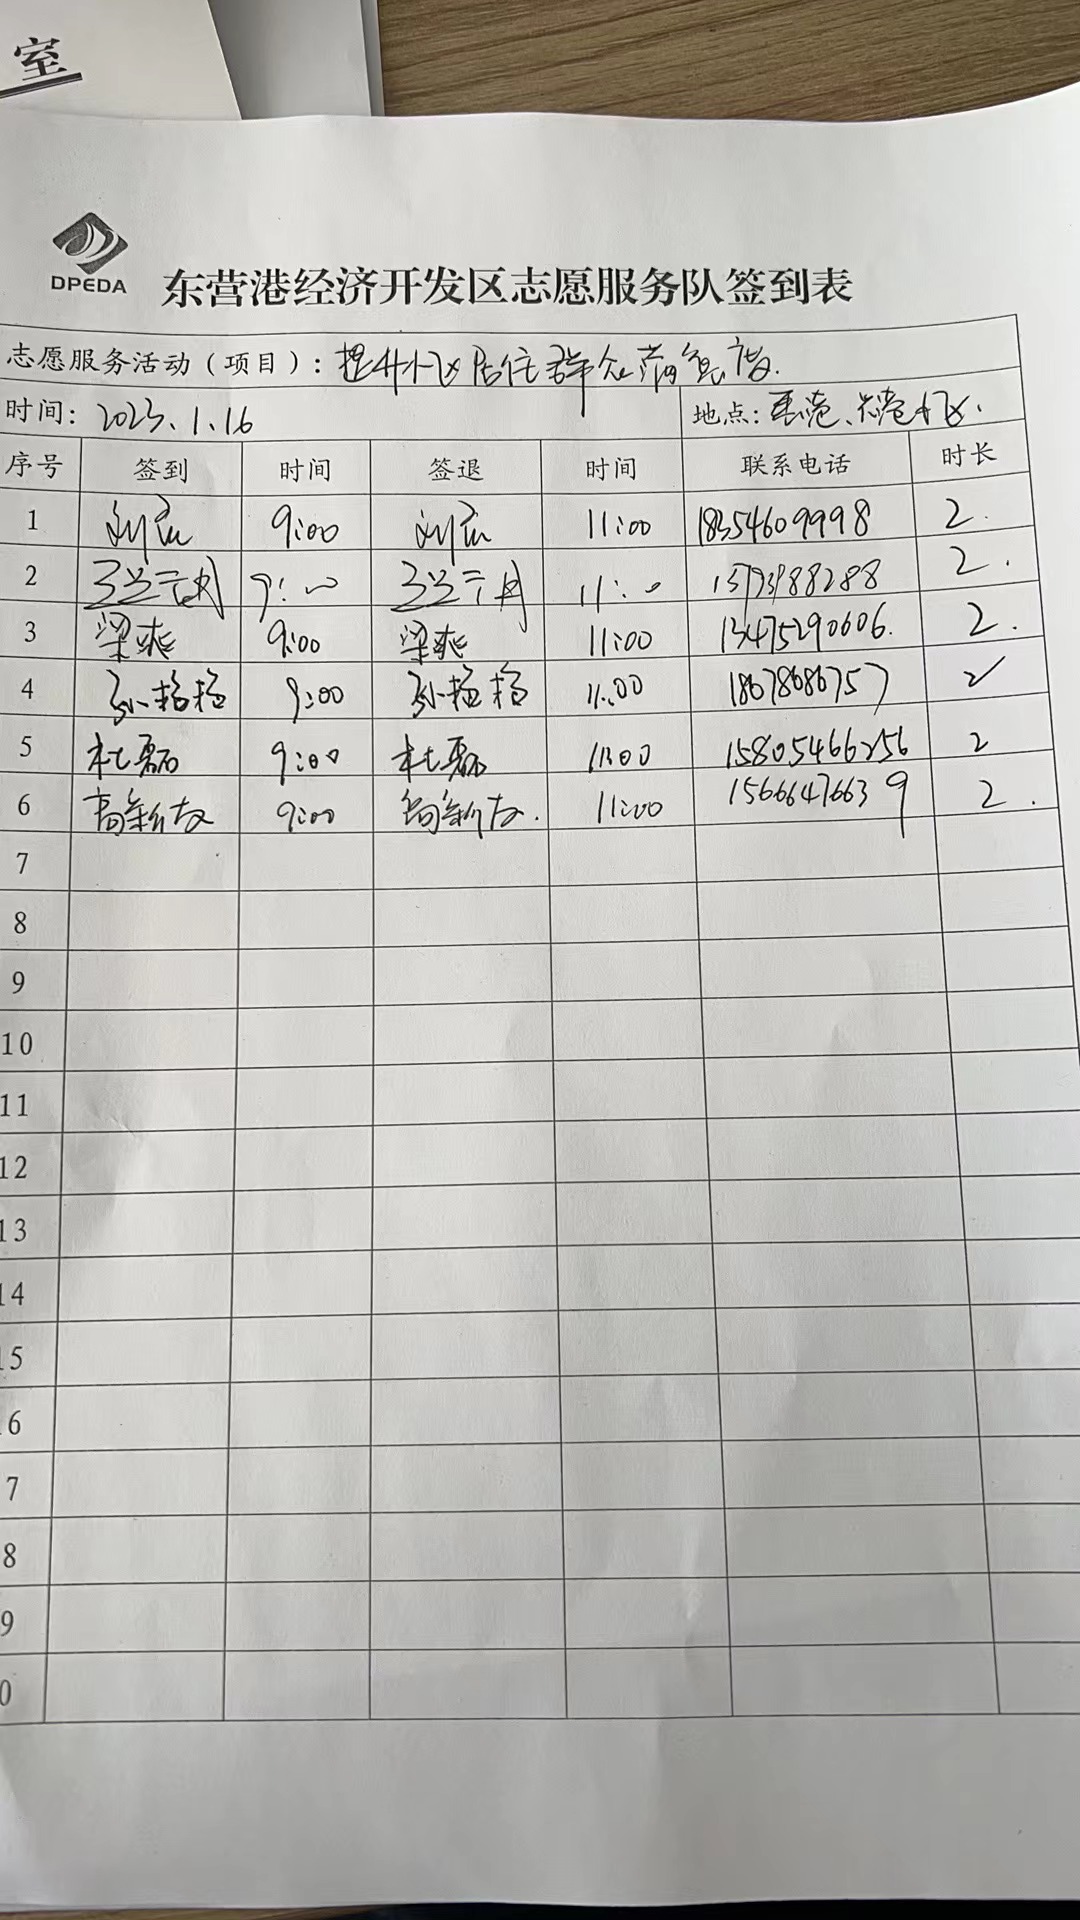 室
DPEDA
东营港经济开发区志愿服务队签到表
志愿服务活动（项目）: 提升小区居住群众满意度.
时间: 2023.1.16 地点: 港、港小区.
序号 签到 时间 签退 时间 联系电话 时长
1 刘 9:00 刘 11:00 18354609998 2.
2 9:00 11:00 2.
3 梁爽 9:00 梁爽 11:00 13475290606. 2.
4 孙杨杨 9:00 孙杨杨 11:00 18678686757 2
5 杜磊 9:00 杜磊 11:00 15805466256 2
6 高新友 9:00 高新友. 11:00 15666476639 2.
7
8
9
10
11
12
13
14
15
6
7
8
9
0